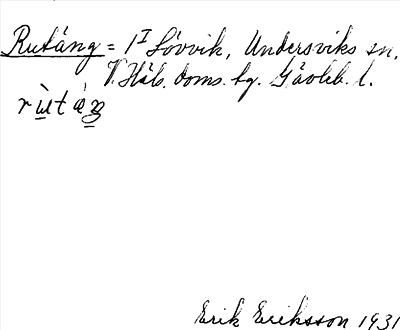 Rutäng = 1^I Lövvik, Undersviks sn,
V. Häls. doms. hg. Gävleb. l.
rùtáŋ
Erik Eriksson 1931